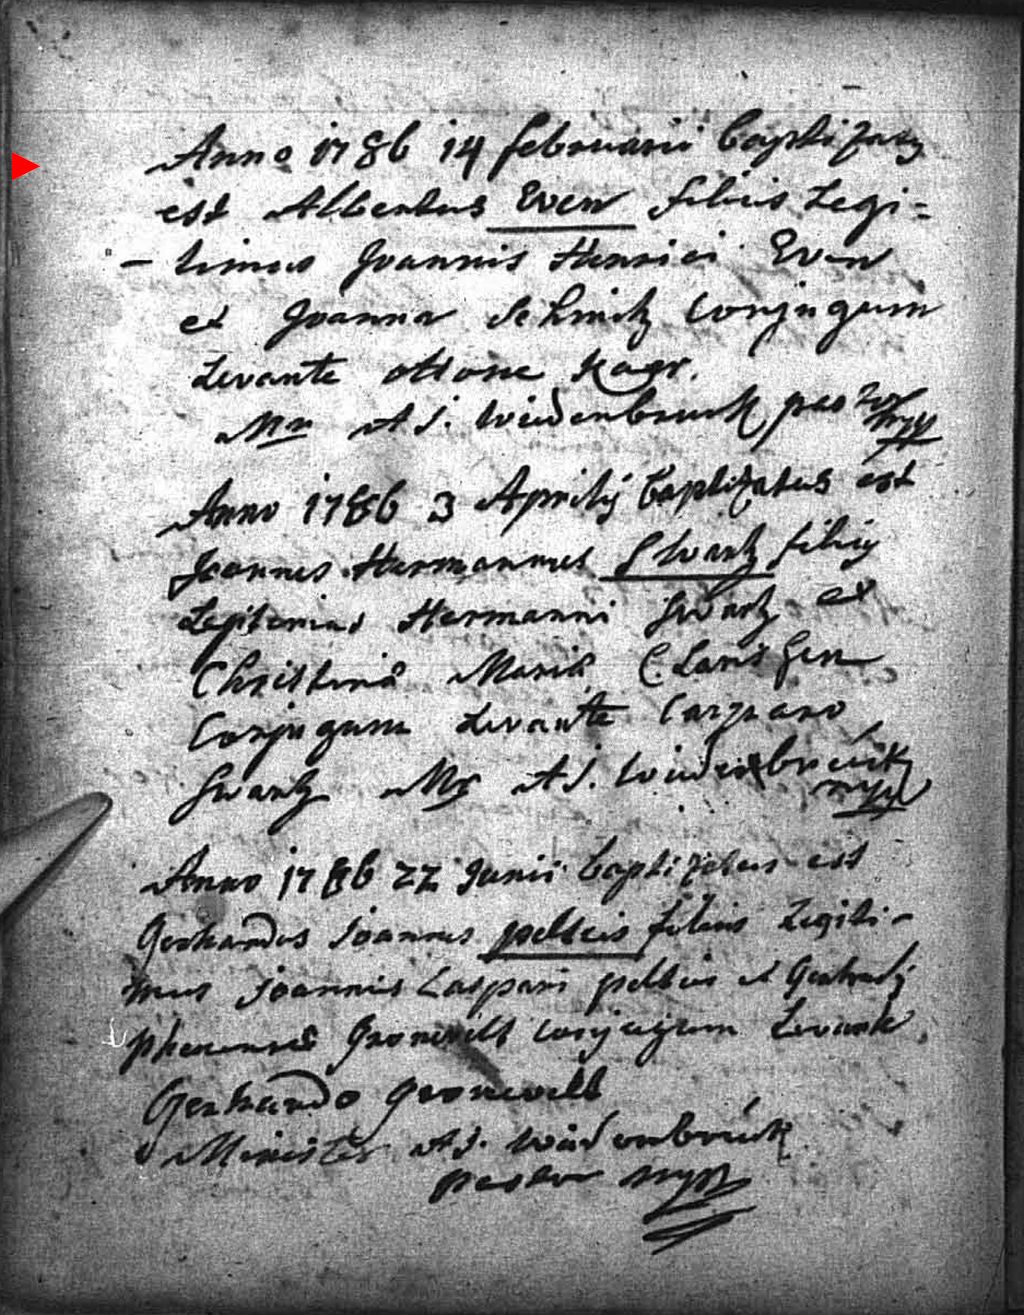 Anno 1786 14 februarii baptizatus
est Albertus Even filius Legi=
- timus Joannis Henrici Even
et Joanna Schmitz conjugum
Levante ottone
Mr A J. Widenbruck pastor mpp
Anno 1786 3 Aprilis baptizatus est
Joannes Hermannus Swartz filius
Legitimus Hermanni Swartz et
Christina Maria
Conjugum Levante
Swartz Mr A J. Widenbrück mpp
Anno 1786 22 Junii baptizatus est
Gerhardus Joannes peltcis filius Legiti-
mus Joannis Caspari peltcis et
Gronevelt conjugum Levante
Gerhardo Gronevelt
Minister A J. Widenbrück
pastor mpp